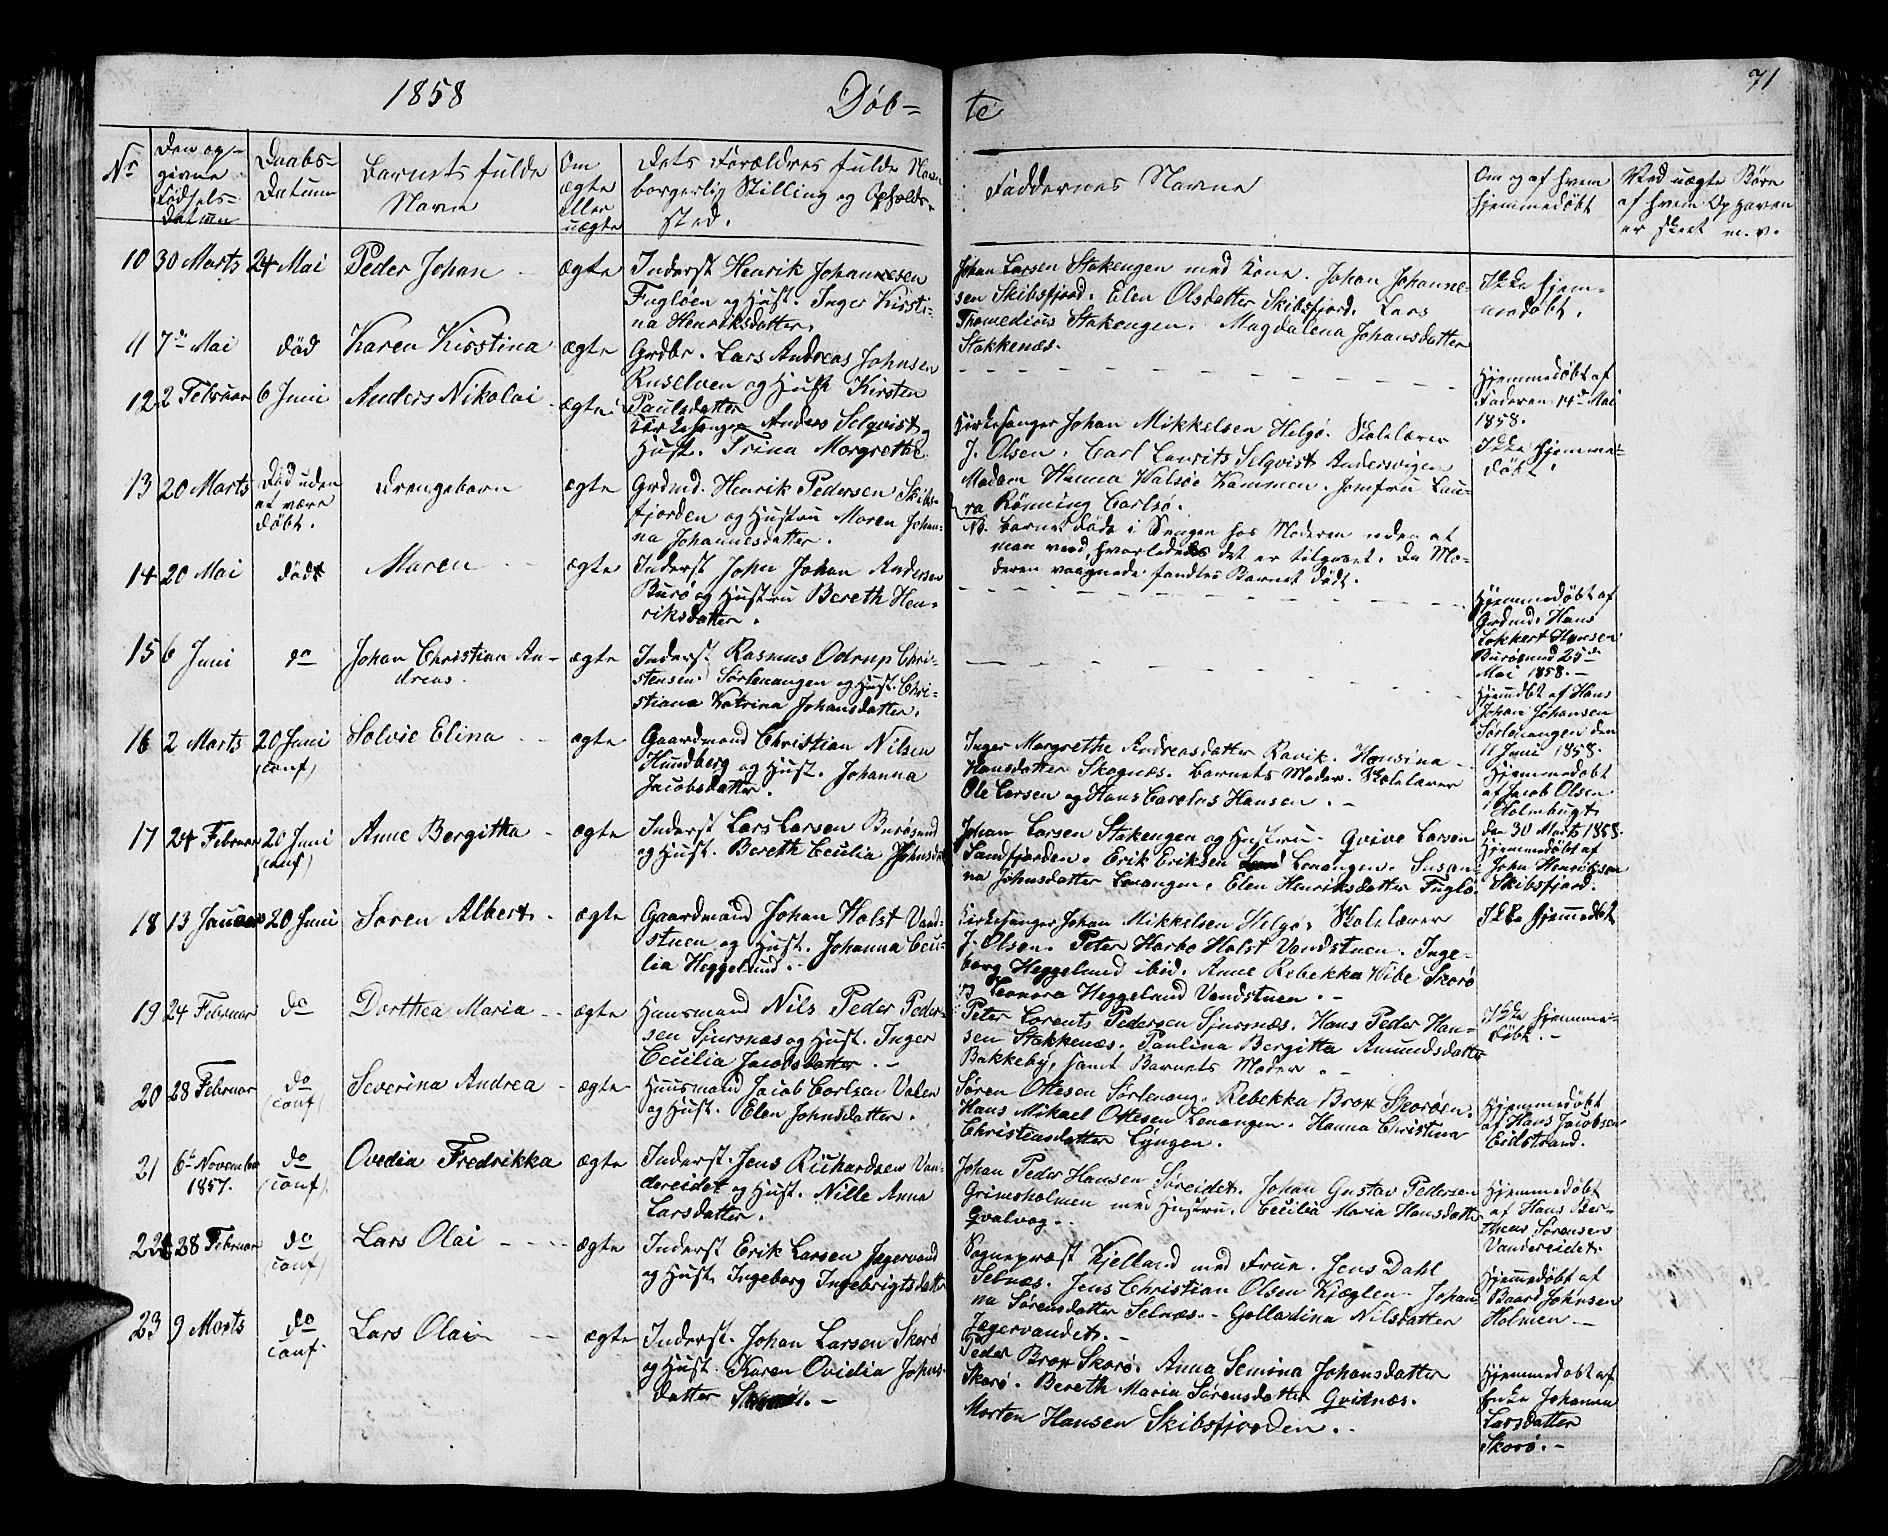 1858
Döb=
te
71
Nr
Den op-
givne
Födsels-
datum
Daabs=
Datum
Barnets fulde
Navn
Om
ægte
eller
uægte
Dets Forældres fulde Navn
borgerlig Stilling og Opholds-
sted.
Faddernes Navne
Om og af hvem
hjemmedöbt
Ved uægte Börn
af hvem Opgaven
er skeet m. v.
10 30 Marts 24 Mai Peder Johan - ægte
Inderst Henrik Johannesen
Fuglöen og Hust. Inger Kirsti-
na Henriksdatter.
Johan Larsen Stakengen med Kone. Johan Johanne-
sen Skibsfjord. Elen Olsdatter Skibsfjord. Lars
Thomedius Stakengen. Magdalena Johansdatter
Stakkenæs.
Ikke hjem-
medöbt.
11 7de Mai död Karen Kirstina ægte
Grdbr. Lars Andreas Johnsen
Ruselven og Hust Kirsten
Paulsdatter
Hjemmedöbt af
Faderen 14de Mai
1858.
12 2 Februar 6 Juni Anders Nikolai ægte
Kirkesanger Anders Selqvist og
Hust. Trina Margrethe
Kirkesanger Johan Mikkelsen Helgö. Skolelærer
J. Olsen. Carl Laurits Selqvist Andersvigen
Madam Hanna Walsöe Kammen. Jomfru Lau-
ra Rönning Carlsö.
Ikke hjemme-
döbt.
13 20 Marts Död uden
at være
döbt.
Drengebarn ægte
Grdmd. Henrik Pedersen Skibs-
fjorden og Hustru Maren Johan-
na Johannesdatter.
NB. Barnet döde i Sengen hos Moderen uden at
man veed, hvorledes det er tilgaaet. Da Mo-
deren vaagnede fandtes Barnet dödt.
14 20 Mai död Maren - - ægte
Inderst John Johan Andersen
Burö og Hustru Bereth Hen-
riksdatter.
Hjemmedöbt af
Grdmd. Hans
Lokkert Hansen
Burösund 25de
Mai 1858. -
15 6 Juni do Johan Christian An-
dreas.
ægte
Inderst. Rasmus Odrup Chri-
stensen Sörlenangen og Hust. Chri-
stiana Katrina Johansdatter.
Hjemdöbt af Hans
Johan Johansen
Sörlenangen den
11 Juni 1858.
16 2 Marts 20 Juni
(conf)
Solvie Elina - - ægte
Gaardmand Christian Nilsen
Hundberg og Hust. Johanna
Jacobsdatter.
Inger Margrethe Andreasdatter Ravik. Hansina
Hansdatter Skognæs. Barnets Moder. Skolelærer
Ole Larsen og Hans Carolus Hansen. -
Hjemmedöbt
af Jacob Olsen
Holmbugt
den 30 Marts 1858.
17 24 Februar 20 Juni
(conf)
Anne Bergitha - ægte
Inderst Lars Larsen Burösund
og Hust. Bereth Cecilia Johnsdat
Johan Larsen Stakengen og Hustru. Qvive Larsen
Sandfjorden. Erik Eriksen Lenangen. Susan-
na Johnsdatter Lenangen. Elen Henriksdatter Fuglö.
Hjemmedöbt af
John Henriksen
Skibsfjord.
18 13 Januar 20 Juni Soren Albert - ægte
Gaardmand Johan Holst Vand-
stuen og Hust. Johanna Ceci-
lia Heggelund. -
Kirkesanger Johan Mikkelsen Helgö. Skolelærer
J. Olsen. Peter Harbo Holst Vandstuen. Inge-
borg Heggelund ibid. Anne Rebekka Wibe Skorö
B. Leonora Heggelund Vandstuen. -
Ikke hjemmedöbt
19 24 Februar do Dorthea Maria - - ægte
Huusmand Nils Peder Peder-
sen Sjursnæs og Hust. Inger
Cecilia Jacobsdatter. -
Peter Lorents Pedersen Sjursnæs. Hans Peder Han-
sen Stakkenæs. Paulina Bergitta Amundsdatter
Bakkeby, samt Barnets Moder. -
Ikke hjemme-
döbt. -
20 28 Februar do
(conf)
Severina Andrea - ægte
Huusmand Jacob Carlsen Valen
og Hust. Elen Johnsdatter.
Sören Ottesen Sörlenang. Rebekka Brox Skoröen.
Hans Mikael Ottesen Lenangen. Hanna Christina
Christensdatter Lyngen.
Hjemmedöbt
af Hans Jacobsen
Eidstrand.
21 6te November
1857.
do
(conf).
Ovedia Fredrikka ægte
Inderst. Jens Richardsen Van-
dereidet og Hust. Nille Anna
Larsdatter.
Johan Peder Hansen Söreidet. Johan Gustav Pedersen
Grimsholmen med Hustru. Cecilia Maria Hansdatter
Qvalvog.
Hjemmedöbt
af Hans Ber-
theus Sörensen
Vandereidet.
22 28 Februar do
(conf)
Lars Olai - - - ægte
Inderst Erik Larsen Jægervand
og Hust. Ingeborg Ingebrigtsdatte
Sognepræst Kjelland med Frue. Jens Dahl
Selnæs. Jens Christian Olsen Kjæglen. Johan-
na Sörensdatter Selnæs. Golladina Nilsdatter
Jægervandet. -
Hjemmedöbt af
Baard Johnsen
Holmen -
23 9 Marts do
conf.
Lars Olai - - ægte
Inderst. Johan Larsen Skorö
og Hust. Karen Ovidia Johns-
datter
Peder Brox Skorö. Anna Semina Johansdatter
Skorö. Bereth Maria Sörensdatter Qvidnæs.
Morten Hansen Skibsfjorden.
Hjemmedöbt af
Enke Johanna
Larsdatter
Skorö. -